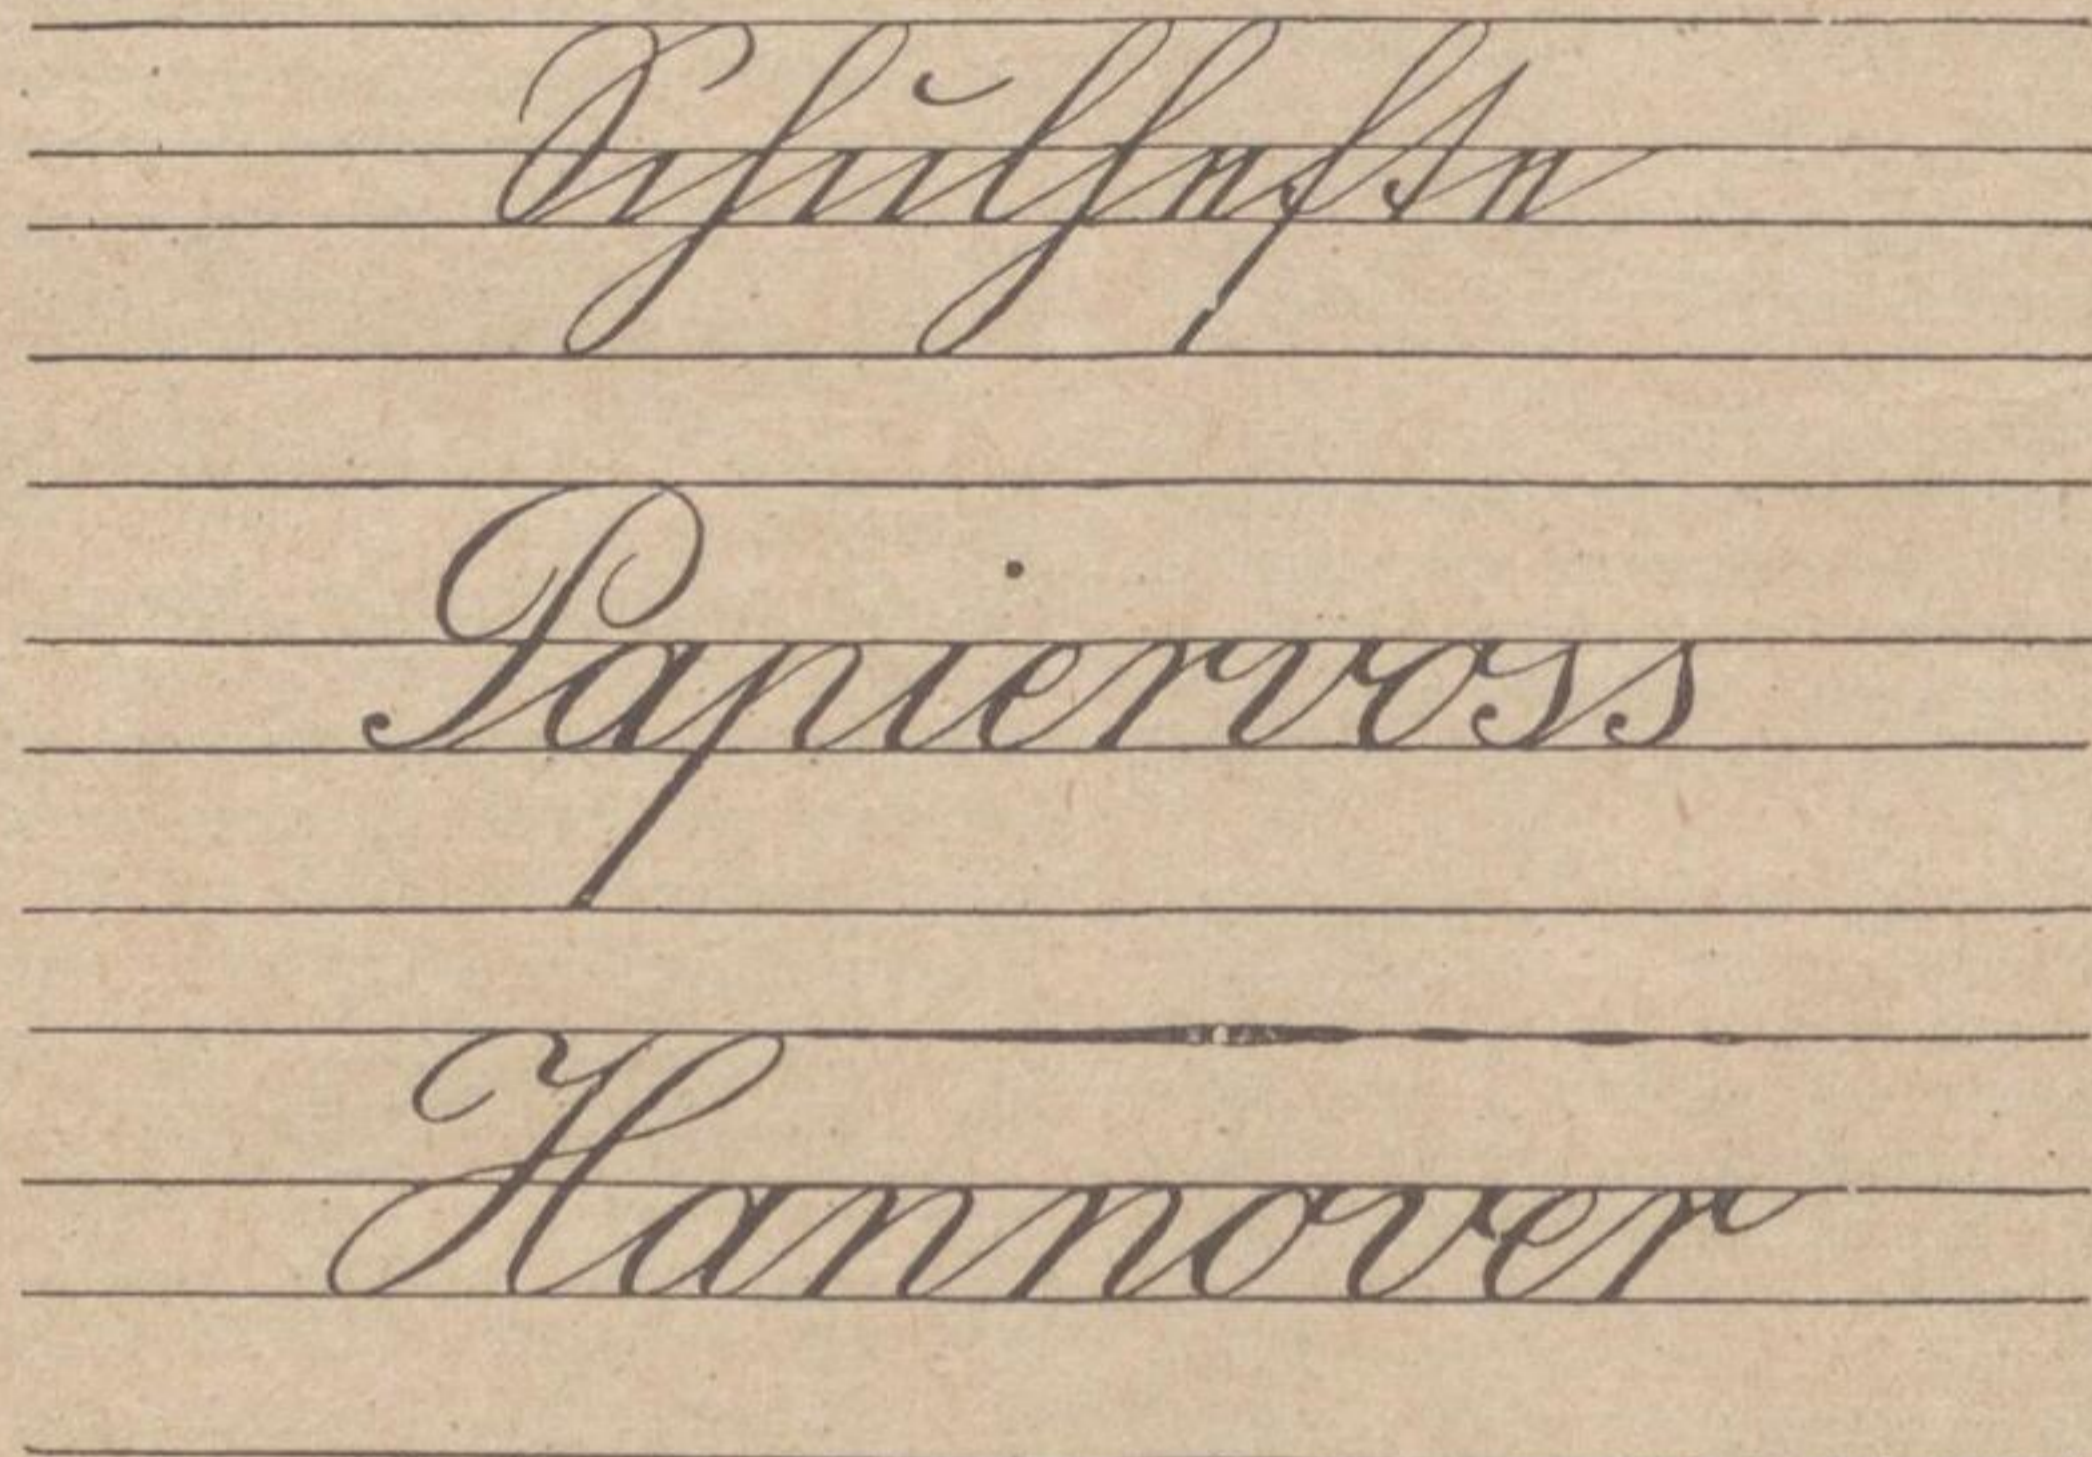 Schulhefte
Papiervoss
Hannover